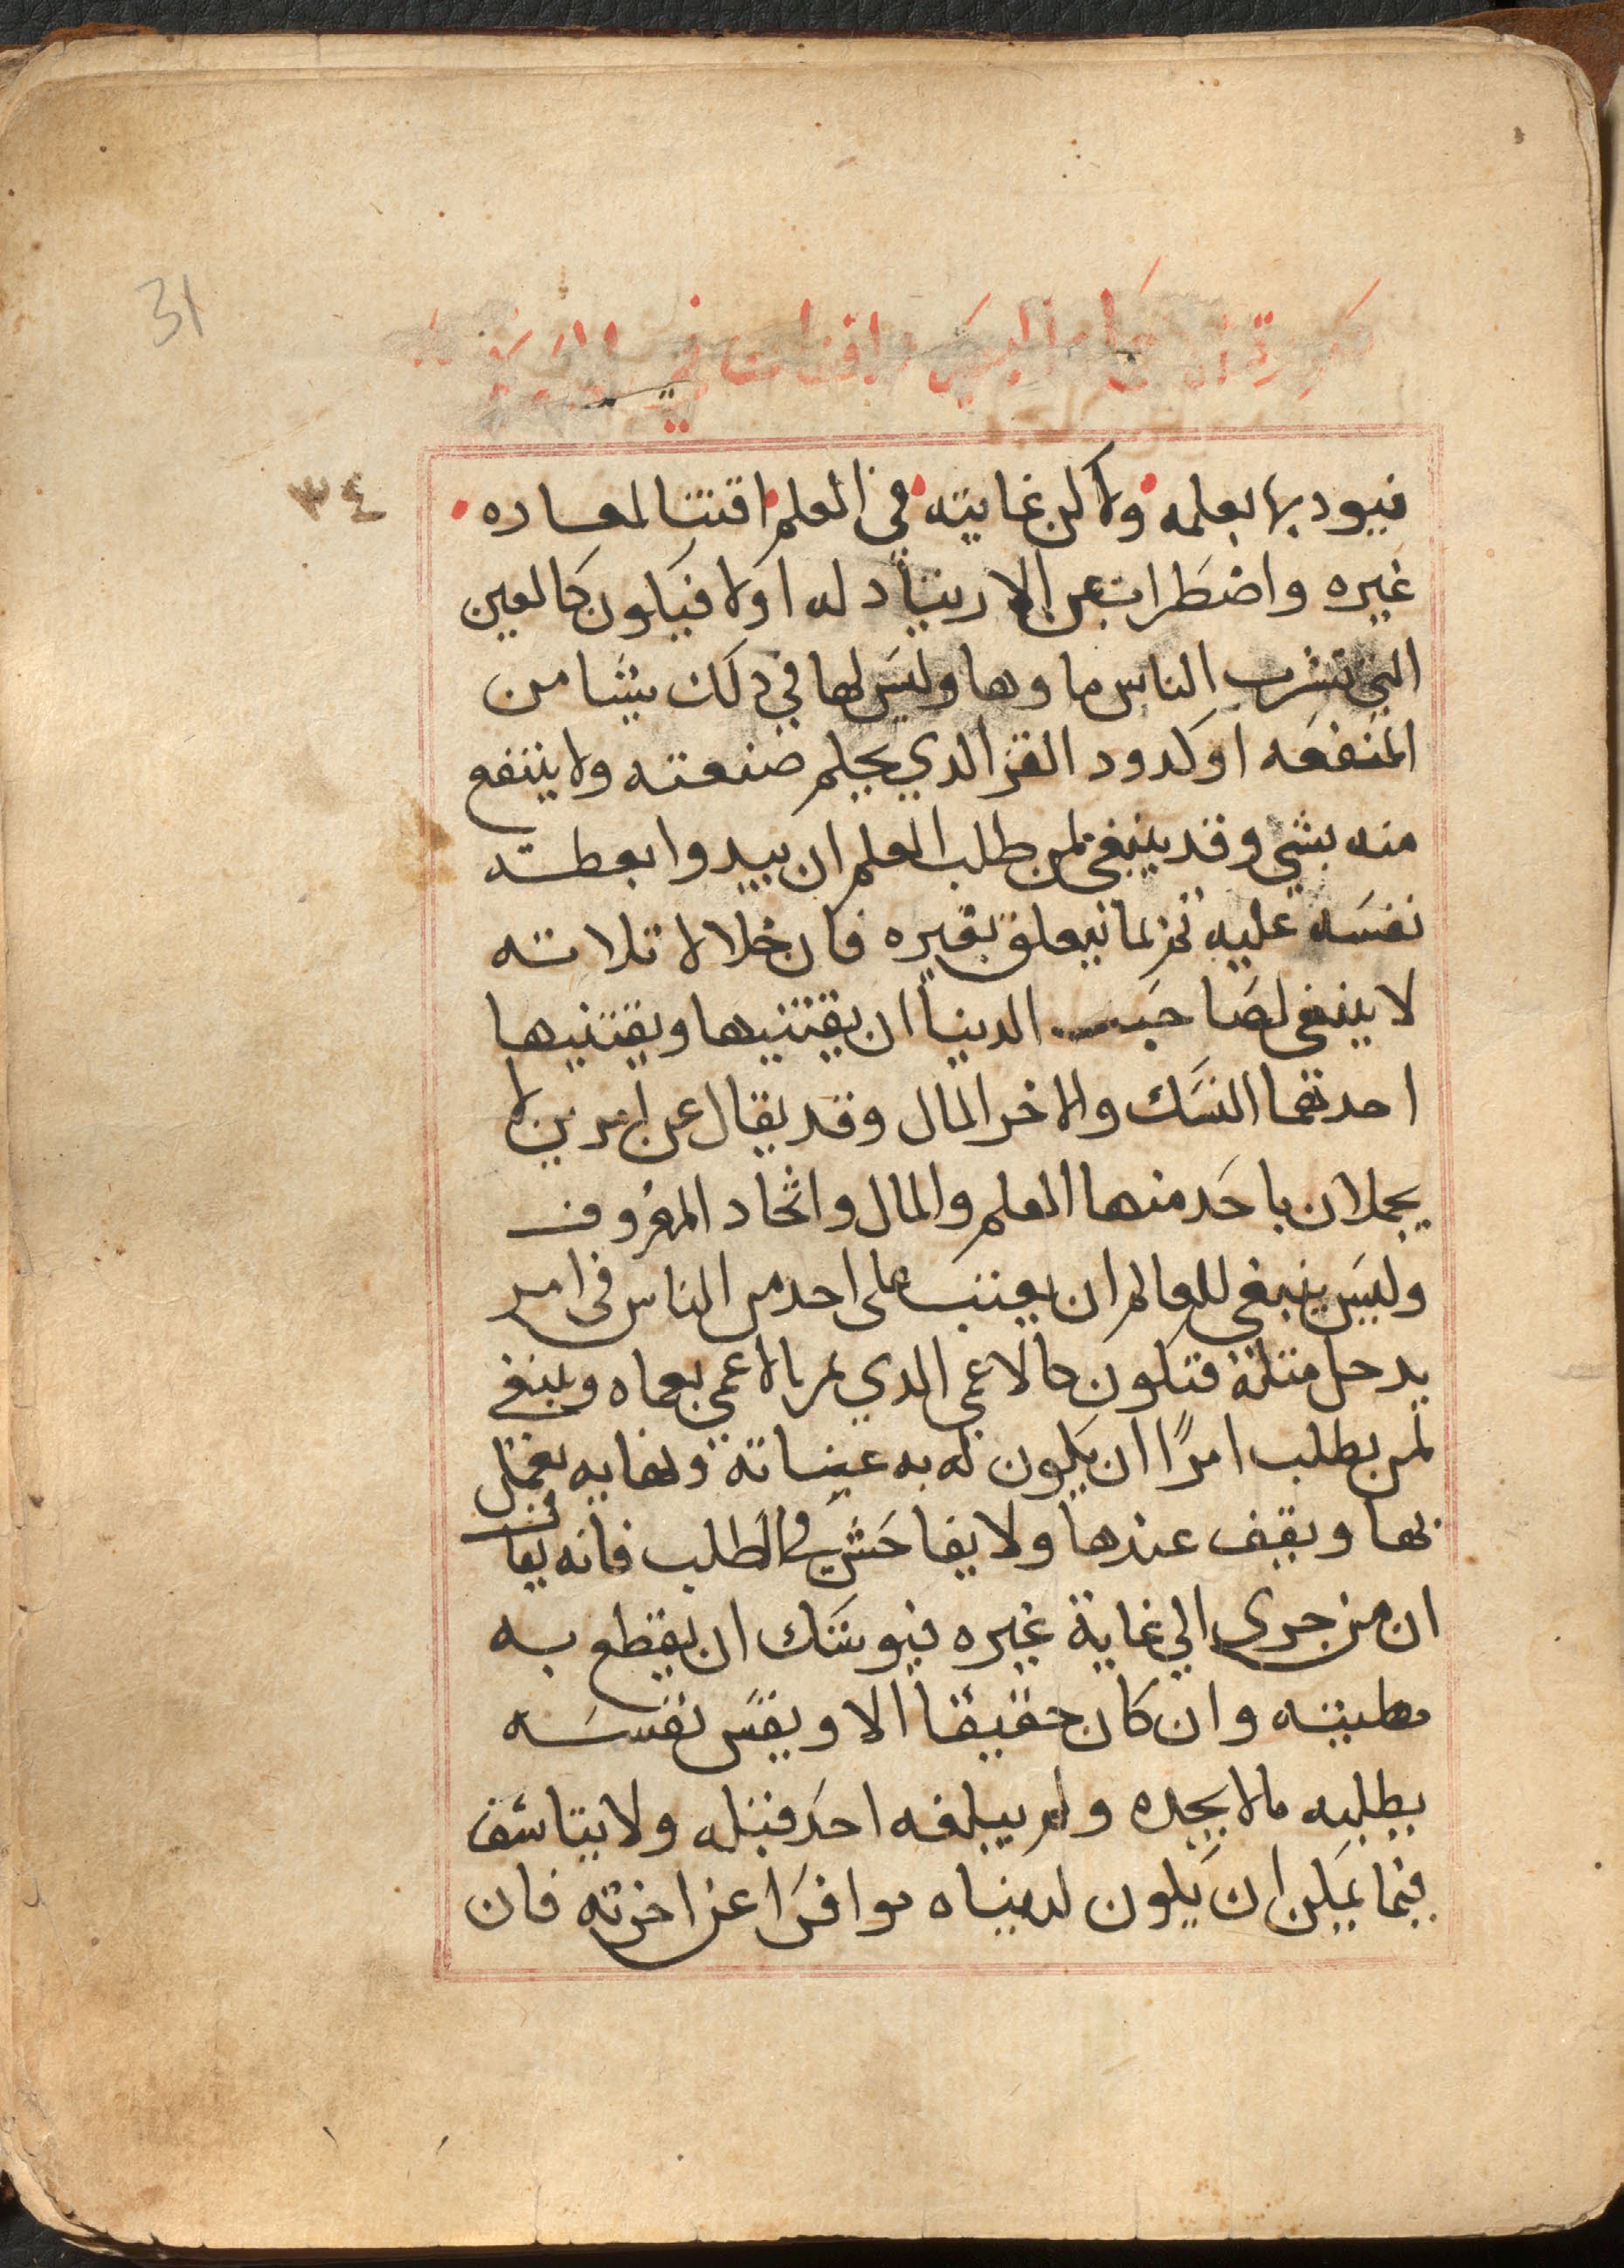 31
٣٤
فيودبها بعلمه ولاكن غايته في العلم اقتنا لمعاده
غيره واضطراب عن الارتياد له اولا فيكون كالعين
التي تشرب الناس ماوها وليس لها في دلك شيا من
المنفعه اوكدود القز الدي يحلم صنعته ولا ينتفع
منه بشي وقد ينبغي لمن طلب العلم ان يبيدوا بعطته
نفسه عليه تم يعلق بغيره فان خلالا تلاته
لا ينبغي لصاحب الدنيا ان يقتنيها ويقتنيها
احدتهما النسك والاخر المال وقد يقال عن امرين لا
يجملان باحد منها العلم والمال واتخاد المعروف
وليس ينبغي للعالم ان يعتب على احد من الناس في امر
يدخل متله فتكون كالاعمي الدي بالاعمي بعماه وينبغي
لمن يطلب امرًا ان يكون له به ونهايه يعمل
بها ويقف عندها ولا يفاحش في الطلب فانه يقا
ان من جري الي غاية غيره فيوشك ان يقطع به
مطيته وان كان حقيقًا الا ويقس نفسه
بطلبه ما لا يجده ولم يبلغه احد قبله ولا يتاسف
فيما يمكن ان يكون لدنياه موافرًا عن اخرته فان